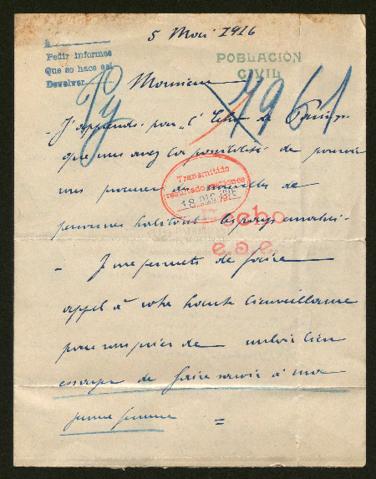 5 Mai 1916
A
Pedir informes
Que se hace así
Devolver
POBLACIÓN
CIVIL
Py
7961
Monsieur
J'apprends par "l'
que vous avez la possibilité de pouvoir
vous procurer des nouvelles de
Transmitido
18
personnes habitant les pays envahis.
- Je me permets de faire
appel à votre haute bienveillance
pour vous prier de vouloir bien
essayer de faire savoir à ma
jeune femme =